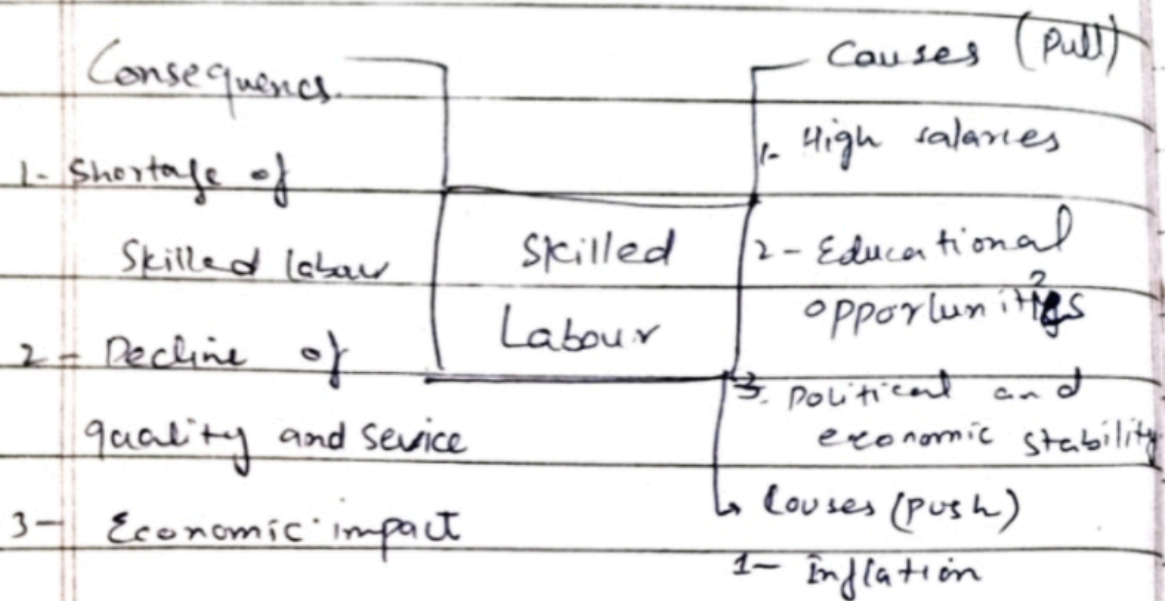 Consequencs.
1- Shortage of
Skilled labour
2- Decline of
quality and sevice
3- Economic impact
Skilled
Labour
Causes (Pull)
1- High salaries
2- Educational
opportunities
3. Political and
economic stability
Causes (push)
1- Inflation